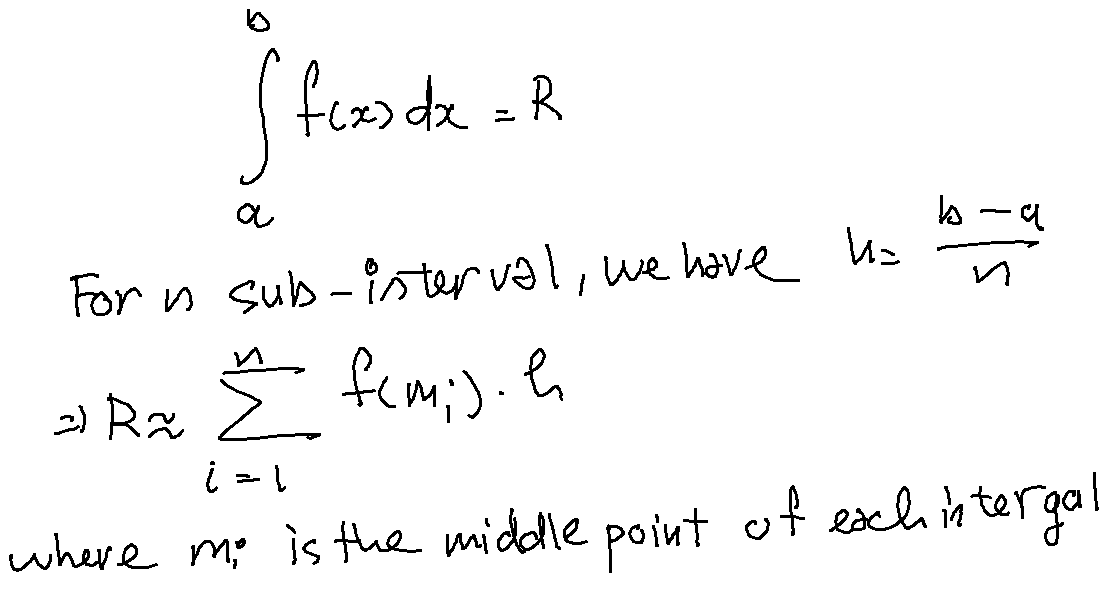 ∫_a^b f(x) dx = R
For n sub-interval, we have h = (b - a)/n
=> R ≈ ∑_{i=1}^{n} f(m_i) . h
where m_i is the middle point of each intergal